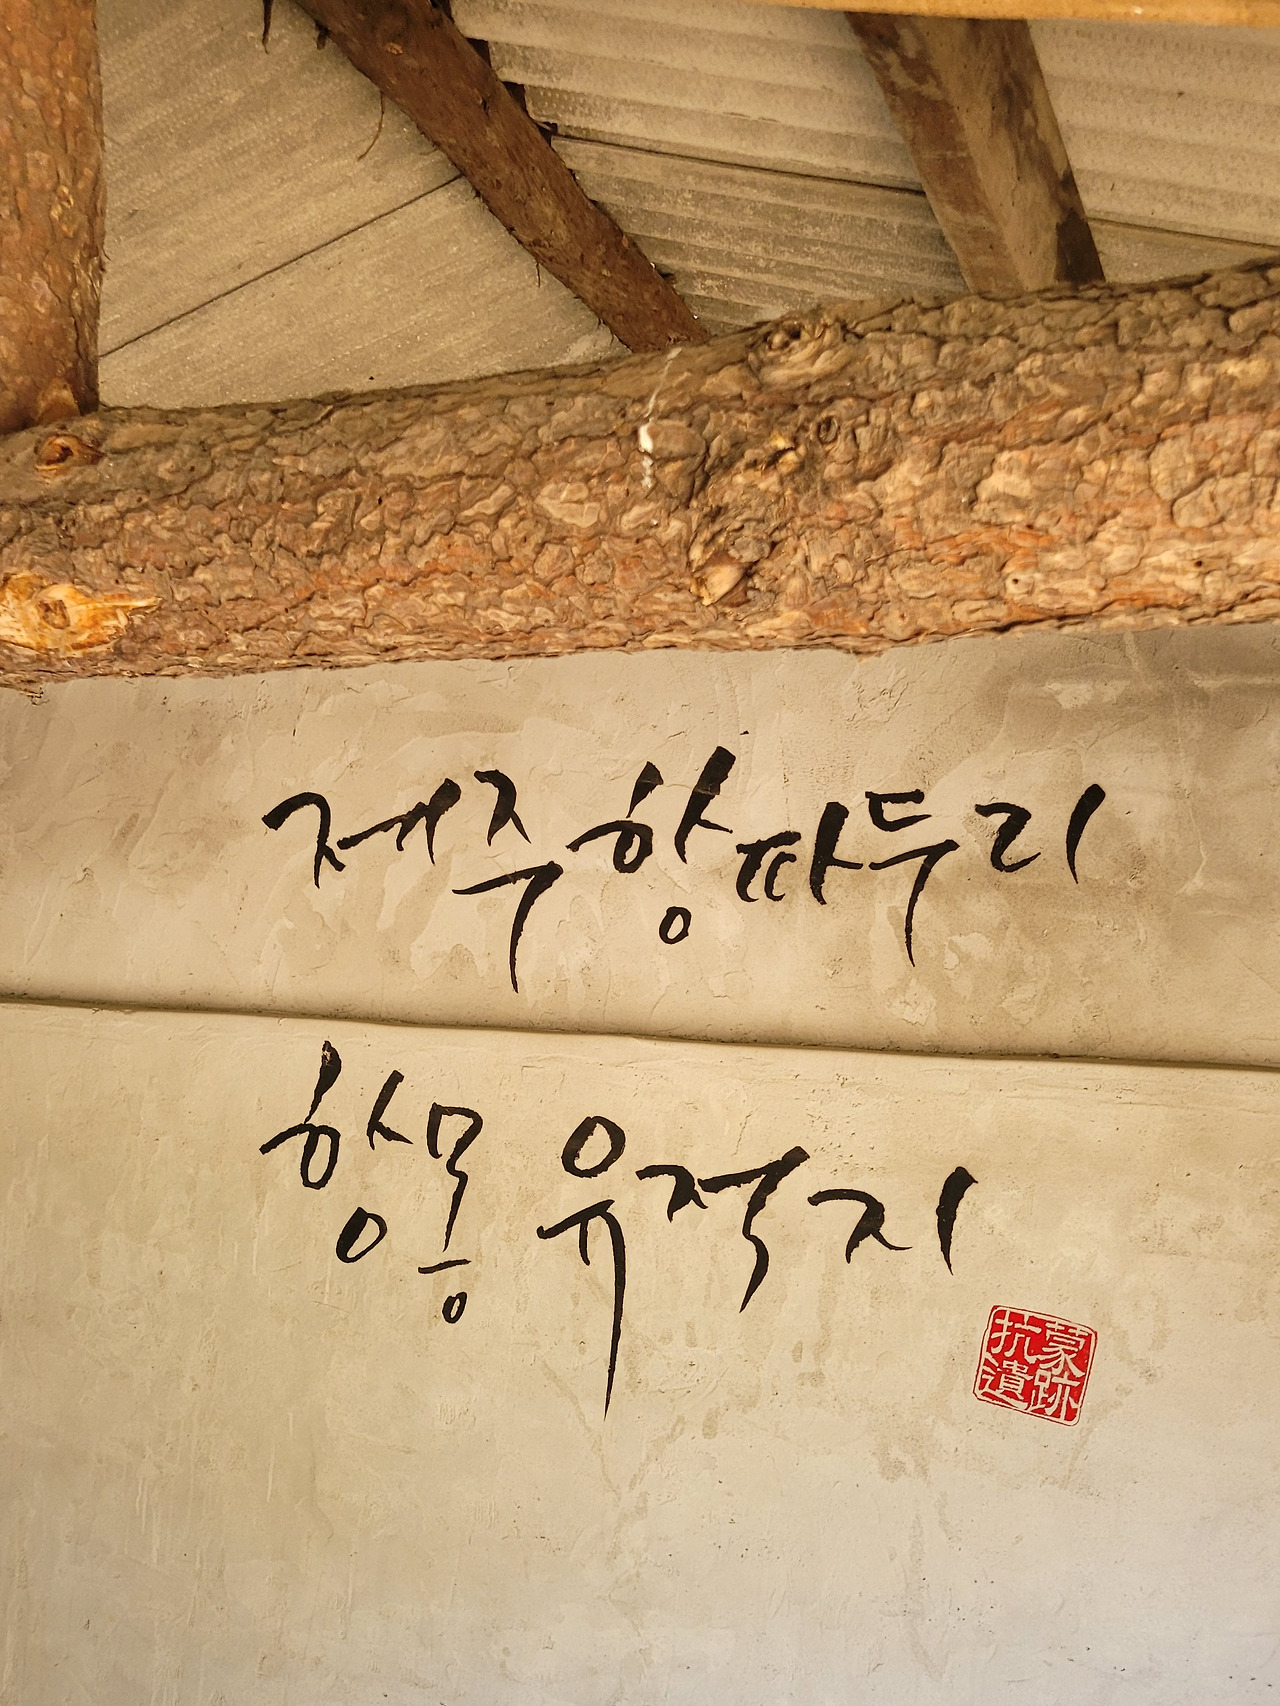 제주항파두리
항몽 유적지
抗蒙
遺跡